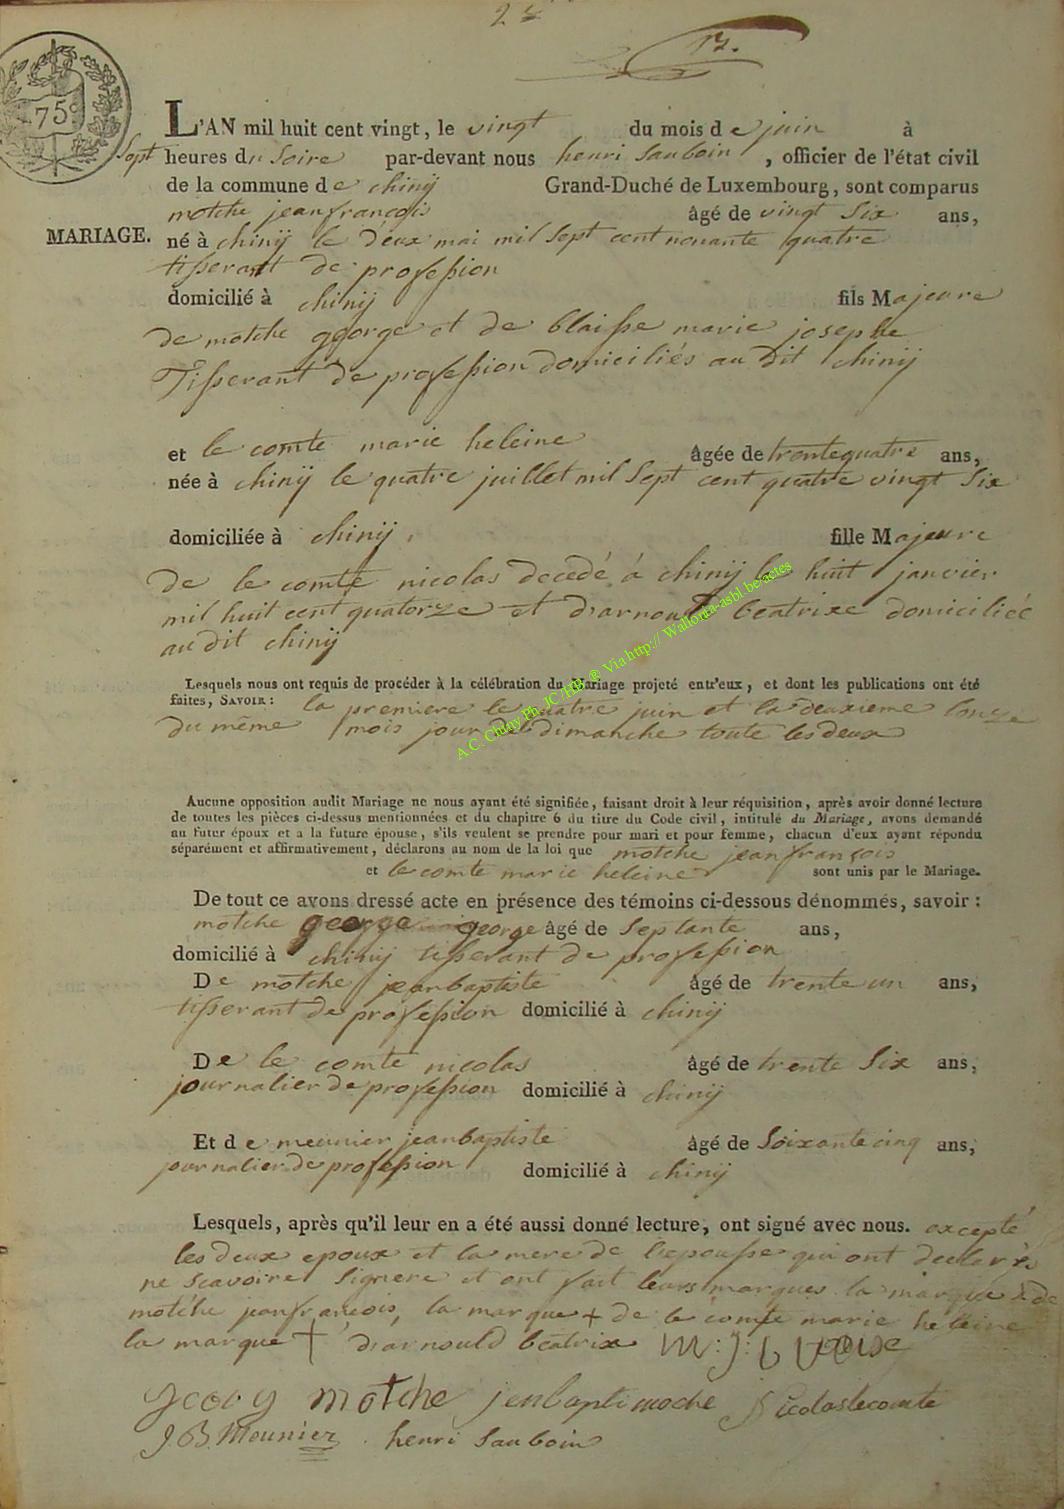 12.
75
L'AN mil huit cent vingt, le vingt du mois de juin à
sept heures du soire par-devant nous henri sauboin, officier de l'état civil
de la commune de chinÿ Grand-Duché de Luxembourg, sont comparus
motche jeanfrançois âgé de vingt six ans,
MARIAGE. né à chinÿ le deux mai mil sept cent nonante quatre
tisserant de profession
domicilié à chinÿ fils Majeure
de motche george et de blaisse marie josephe
Tisserant de profession domiciliés au dit chinÿ
et le comte marie heleine âgée de trentequatre ans,
née à chinÿ le quatre juillet mil sept cent quatre vingt six
domiciliée à chinÿ, fille Majeure
de le comte nicolas decedé à chinÿ le huit janvier
mil huit cent quatorze et d'arnould beatrixe domiciliée
au dit chinÿ
Lesquels nous ont requis de procéder à la célébration du Mariage projeté entr'eux, et dont les publications ont été
faites, SAVOIR : la premiere le quatre juin et la deuxieme l'onze
du même mois jour de dimanche toute les deux
A.C. Chiny Ph. JC/HB ® Via http:// Wallonia-asbl.be/actes
Aucune opposition audit Mariage ne nous ayant été signifiée, faisant droit à leur réquisition, après avoir donné lecture
de toutes les pièces ci-dessus mentionnées et du chapitre 6 du titre du Code civil, intitulé du Mariage, avons demandé
au futur époux et a la future épouse, s'ils veulent se prendre pour mari et pour femme, chacun d'eux ayant répondu
séparément et affirmativement, déclarons au nom de la loi que motche jeanfrançois
et le comte marie heleine sont unis par le Mariage.
De tout ce avons dressé acte en présence des témoins ci-dessous dénommés, savoir :
motche george george âgé de septante ans,
domicilié à chinÿ tisserant de profession
De motche jeanbaptiste âgé de trente un ans,
tisserant de profession domicilié à chinÿ
De le comte nicolas âgé de trente six ans,
journalier de profession domicilié à chinÿ
Et de meunier jeanbaptiste âgé de soixante cinq ans,
journalier de profession domicilié à chinÿ
Lesquels, après qu'il leur en a été aussi donné lecture, ont signé avec nous. excepté
les deux epoux et la mere de l'epousse qui ont declarés
ne scavoire signere et ont fait leurs marques la marque x de
motche jeanfrancois, la marque + de le comte marie heleine
la marque + d'arnould beatrixe m:j:
motche jenbapti moche Nicolas lecomte
J.B. Meunier henri sauboin